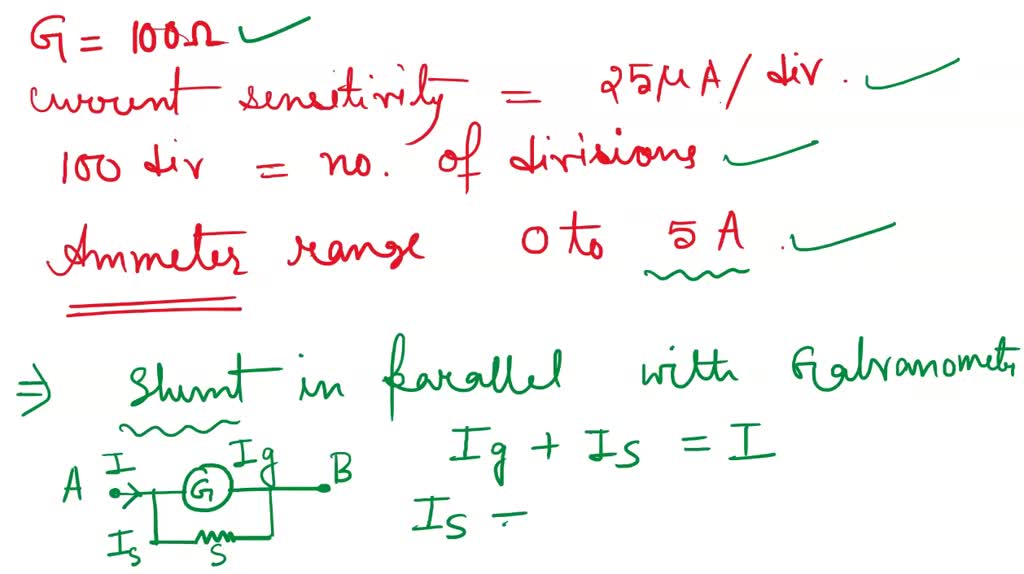 G = 100Ω
current sensitivity = 25μA/div.
100 div = no. of divisions
Ammeter range 0 to 5 A.
⇒ Shunt in parallel with Galvanometer
A I G Ig B
Is S
Ig + Is = I
Is =